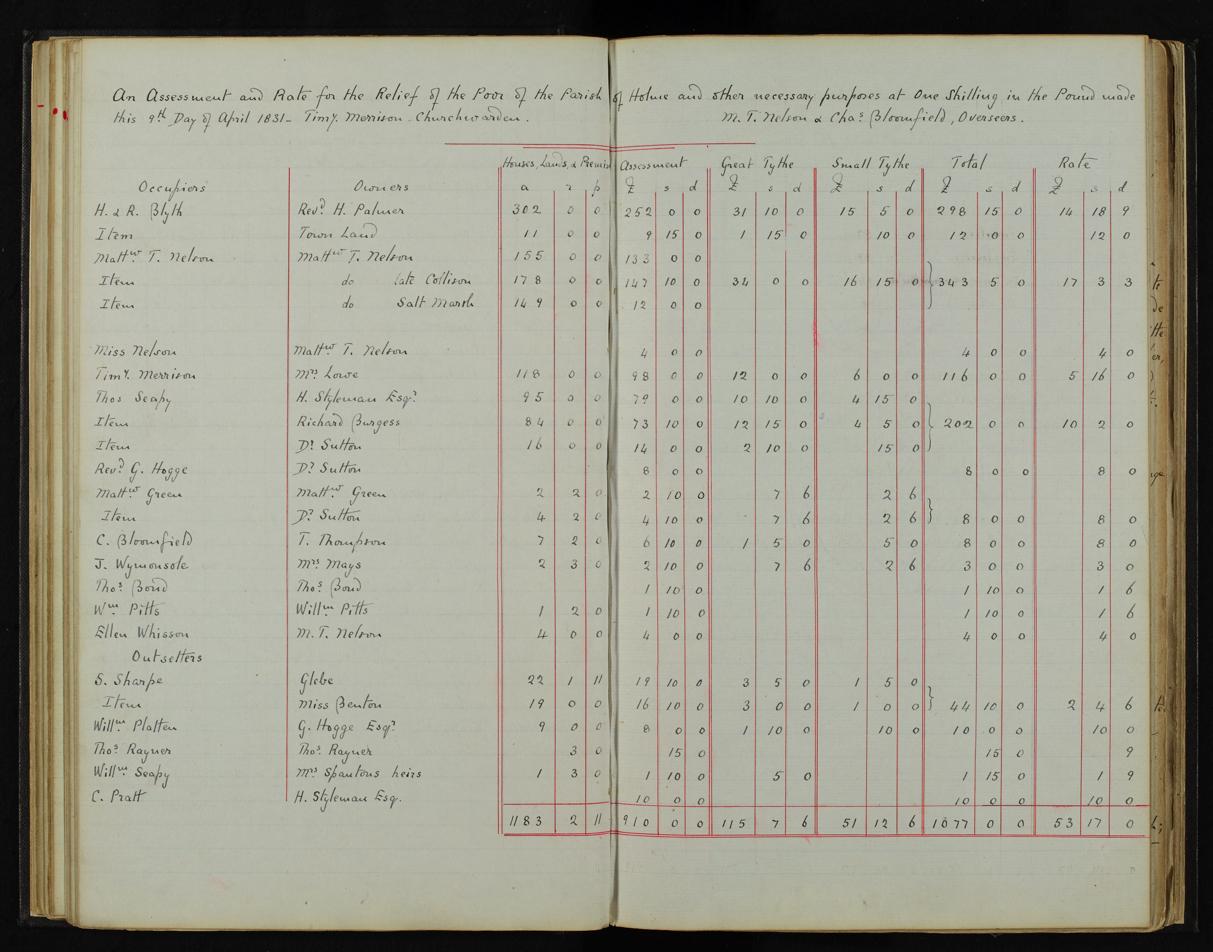 An Assessment and Rate for the Relief of the Poor of the Parish of Holme and other necessary purposes at One Shilling in the Pound made
this 9th Day of April 1831 - Timy. Merrison - Churchwarden. M. T. Nelson & Chas. Bloomfield, Overseers.
Houses, Lands, & Premis Assessment Great Tythe Small Tythe Total Rate
Occupiers Owners a r p £ s d £ s d £ s d £ s d £ s d
H. & R. Blyth Revd. H. Palmer 302 0 0 252 0 0 31 10 0 15 5 0 298 15 0 14 18 9
Item Town Land 11 0 0 9 15 0 1 15 0 10 0 12 0 0 12 0
Mattw T. Nelson Mattw T. Nelson 155 0 0 133 0 0
Item do late Collison 178 0 0 147 10 0 34 0 0 16 15 0 } 343 5 0 17 3 3
Item do Salt Marsh 149 0 0 12 0 0
Miss Nelson Mattw T. Nelson 4 0 0 4 0 0 4 0
Timy. Merrison Mrs Lowe 118 0 0 98 0 0 12 0 0 6 0 0 116 0 0 5 16 0
Thos Seapy H. Styleman Esqr. 95 0 0 79 0 0 10 10 0 4 15 0
Item Richard Burgess 84 0 0 73 10 0 12 15 0 4 5 0 } 202 0 0 10 2 0
Item Dr. Sutton 16 0 0 14 0 0 2 10 0 15 0
Revd. G. Hogge Dr. Sutton 8 0 0 8 0 0 8 0
Mattw Green Mattw Green 2 2 0 2 10 0 7 6 2 6
Item Dr. Sutton 4 2 0 4 10 0 7 6 2 6 } 8 0 0 8 0
C. Bloomfield T. Thompson 7 2 0 6 10 0 1 5 0 5 0 8 0 0 8 0
J. Wymonsole Mrs Mays 2 3 0 2 10 0 7 6 2 6 3 0 0 3 0
Thos. Bond Thos. Bond 1 10 0 1 10 0 1 6
Wm Pitts Willm Pitts 1 2 0 1 10 0 1 10 0 1 6
Ellen Whisson M. T. Nelson 4 0 0 4 0 0 4 0 0 4 0
Outsetters
S. Sharpe Glebe 22 1 11 19 10 0 3 5 0 1 5 0
Item Miss Benton 19 0 0 16 10 0 3 0 0 1 0 0 } 44 10 0 2 4 6
Willm. Platten G. Hogge Esqr. 9 0 0 8 0 0 1 10 0 10 0 10 0 0 10 0
Thos. Rayner Thos. Rayner 3 0 15 0 15 0 9
Willm. Seapy Mrs Spantons heirs 1 3 0 1 10 0 5 0 1 15 0 1 9
C. Pratt H. Styleman Esq. 10 0 0 10 0 0 10 0
1183 2 11 910 0 0 115 7 6 51 12 6 1077 0 0 53 17 0